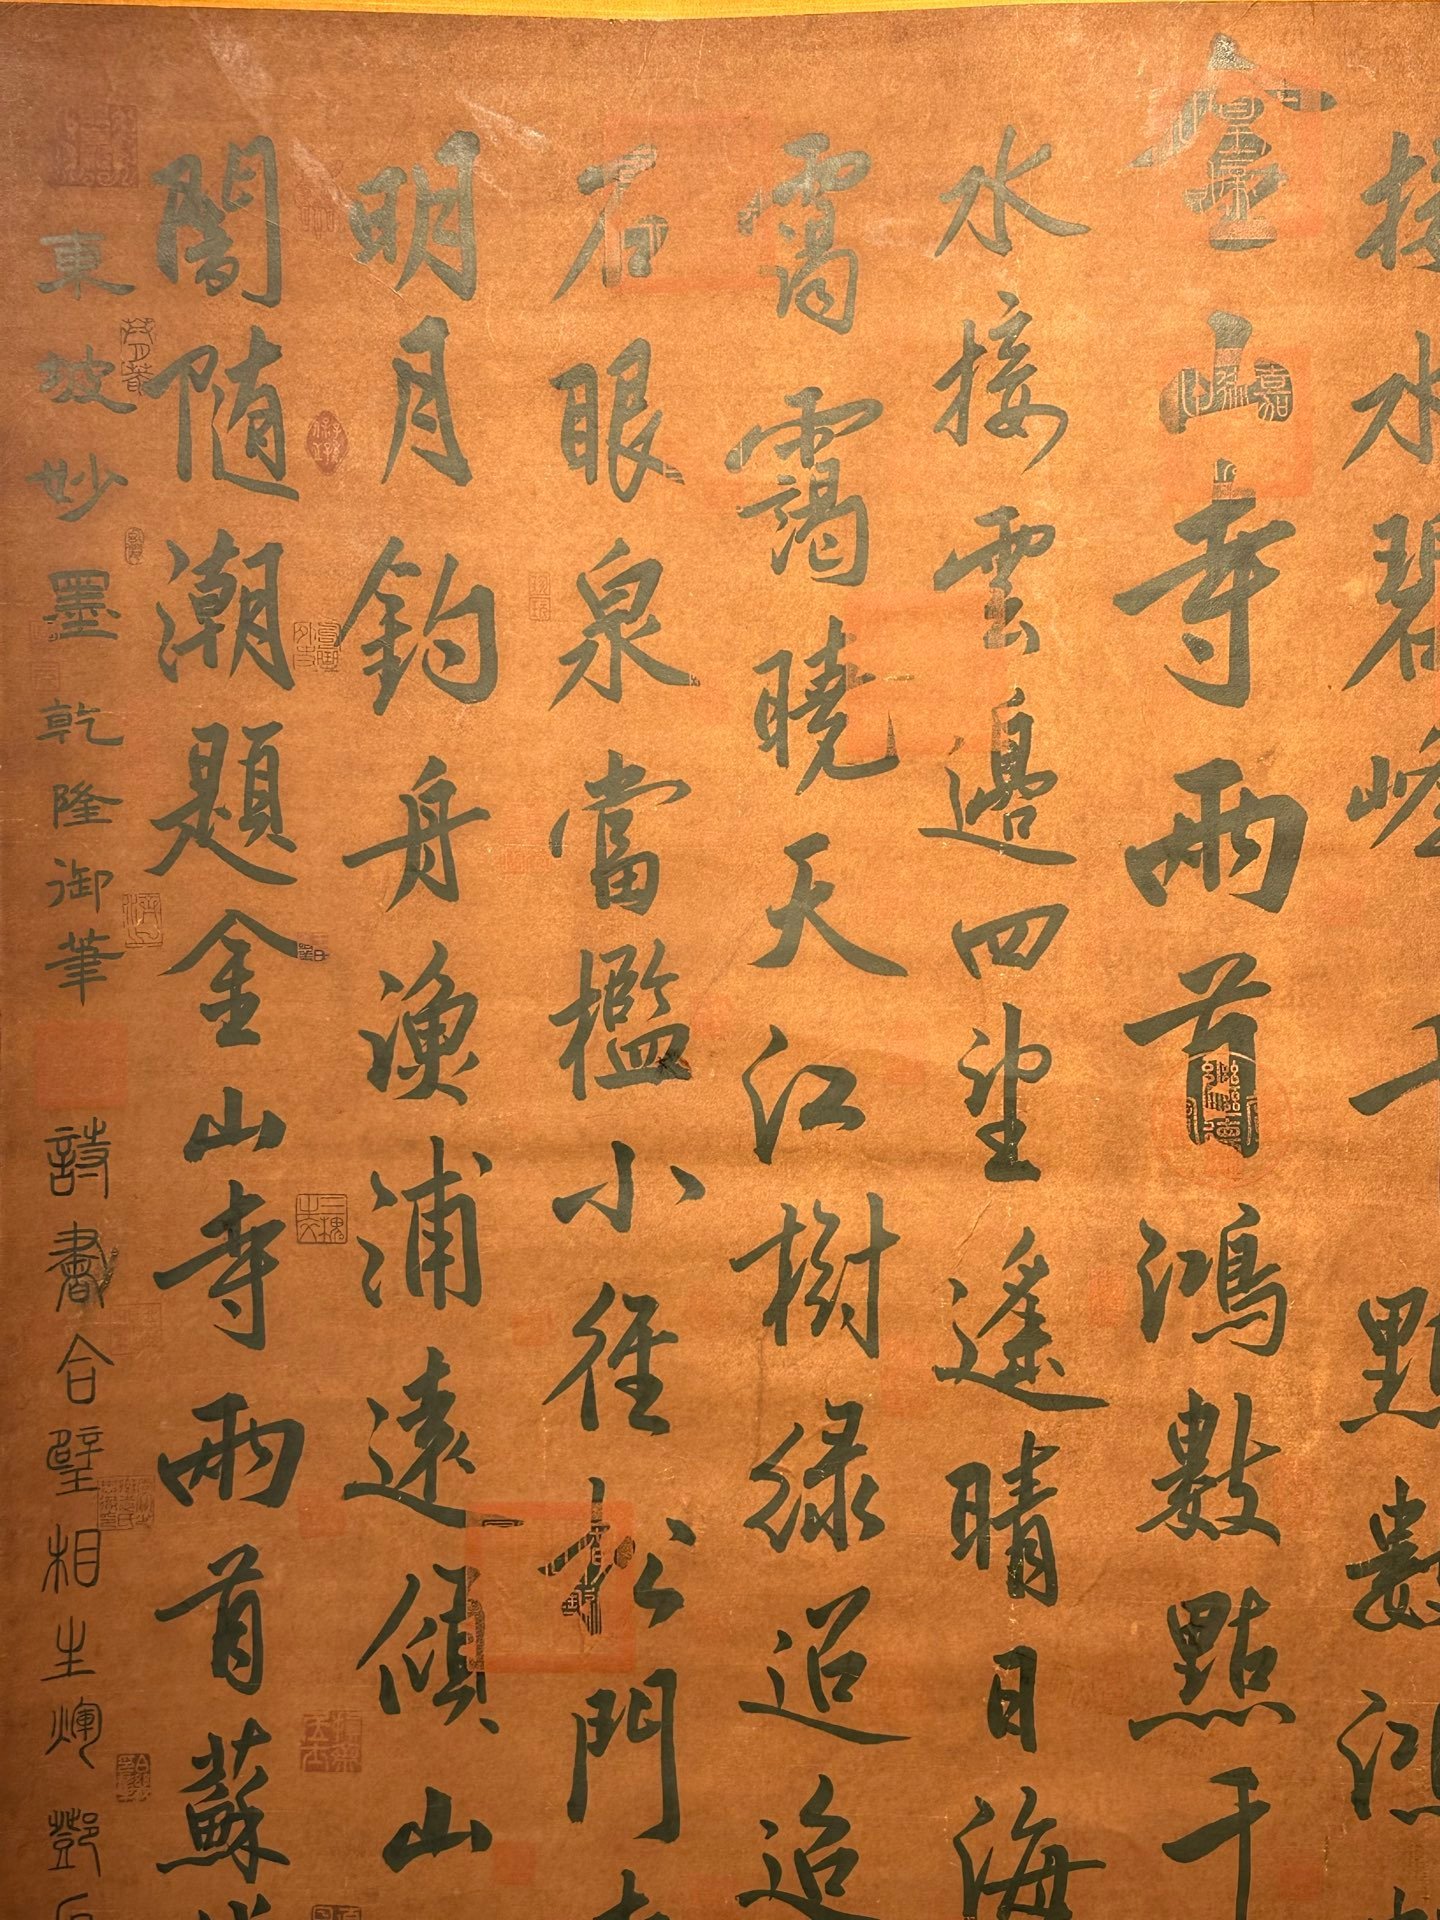 接水碧峰千點數鴻
金山寺兩首鴻數點千
水接雲邊四望遙晴日海
靄靄曉天江樹綠迢迢
石眼泉當檻小徑松門
明月釣舟漁浦遠傾山
闇隨潮題金山寺兩首蘇
東坡妙墨乾隆御筆詩書合璧相生輝鄧